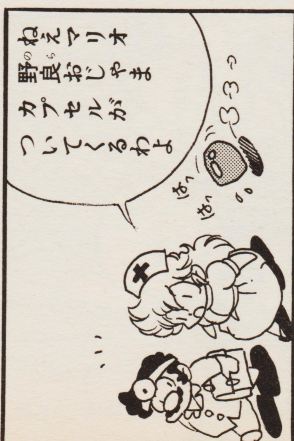 ねえマリオ
野良おじゃま
のら
カプセルが
ついてくるわよ
はっ
はっ